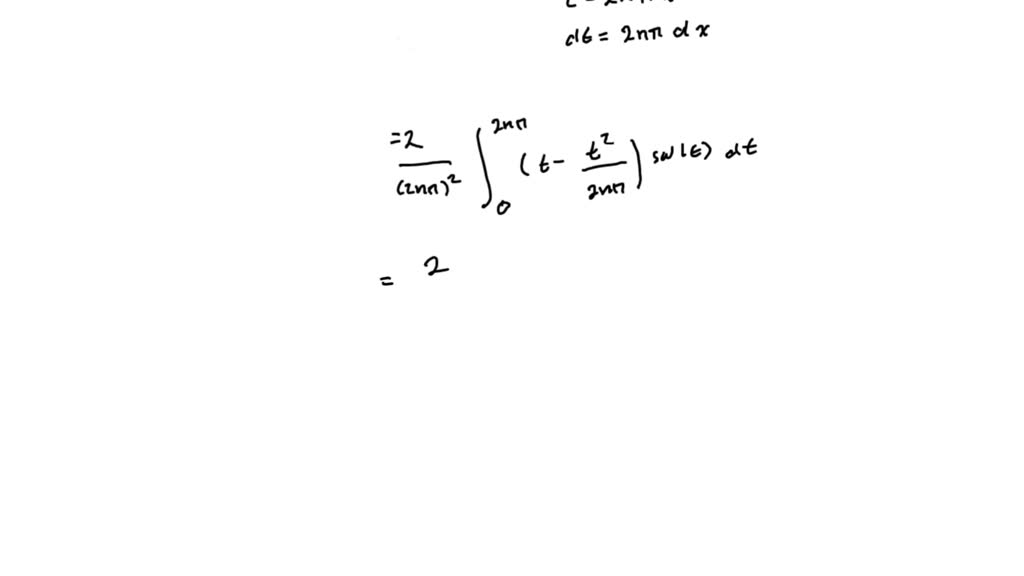 dt = 2nπ dx
= 2/(2nπ)² ∫₀^{2nπ} (t - t²/2nπ) sin(t) dt
= 2